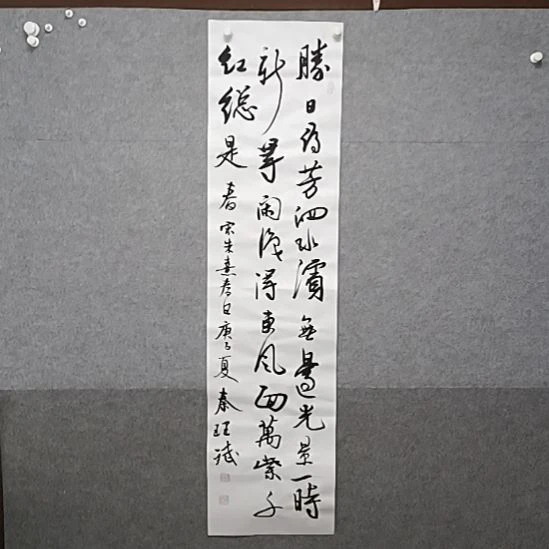 勝日尋芳泗水濱無邊光景一時
新等閑識得東風面萬紫千
紅總是春宋朱熹春日庚子夏秦斌